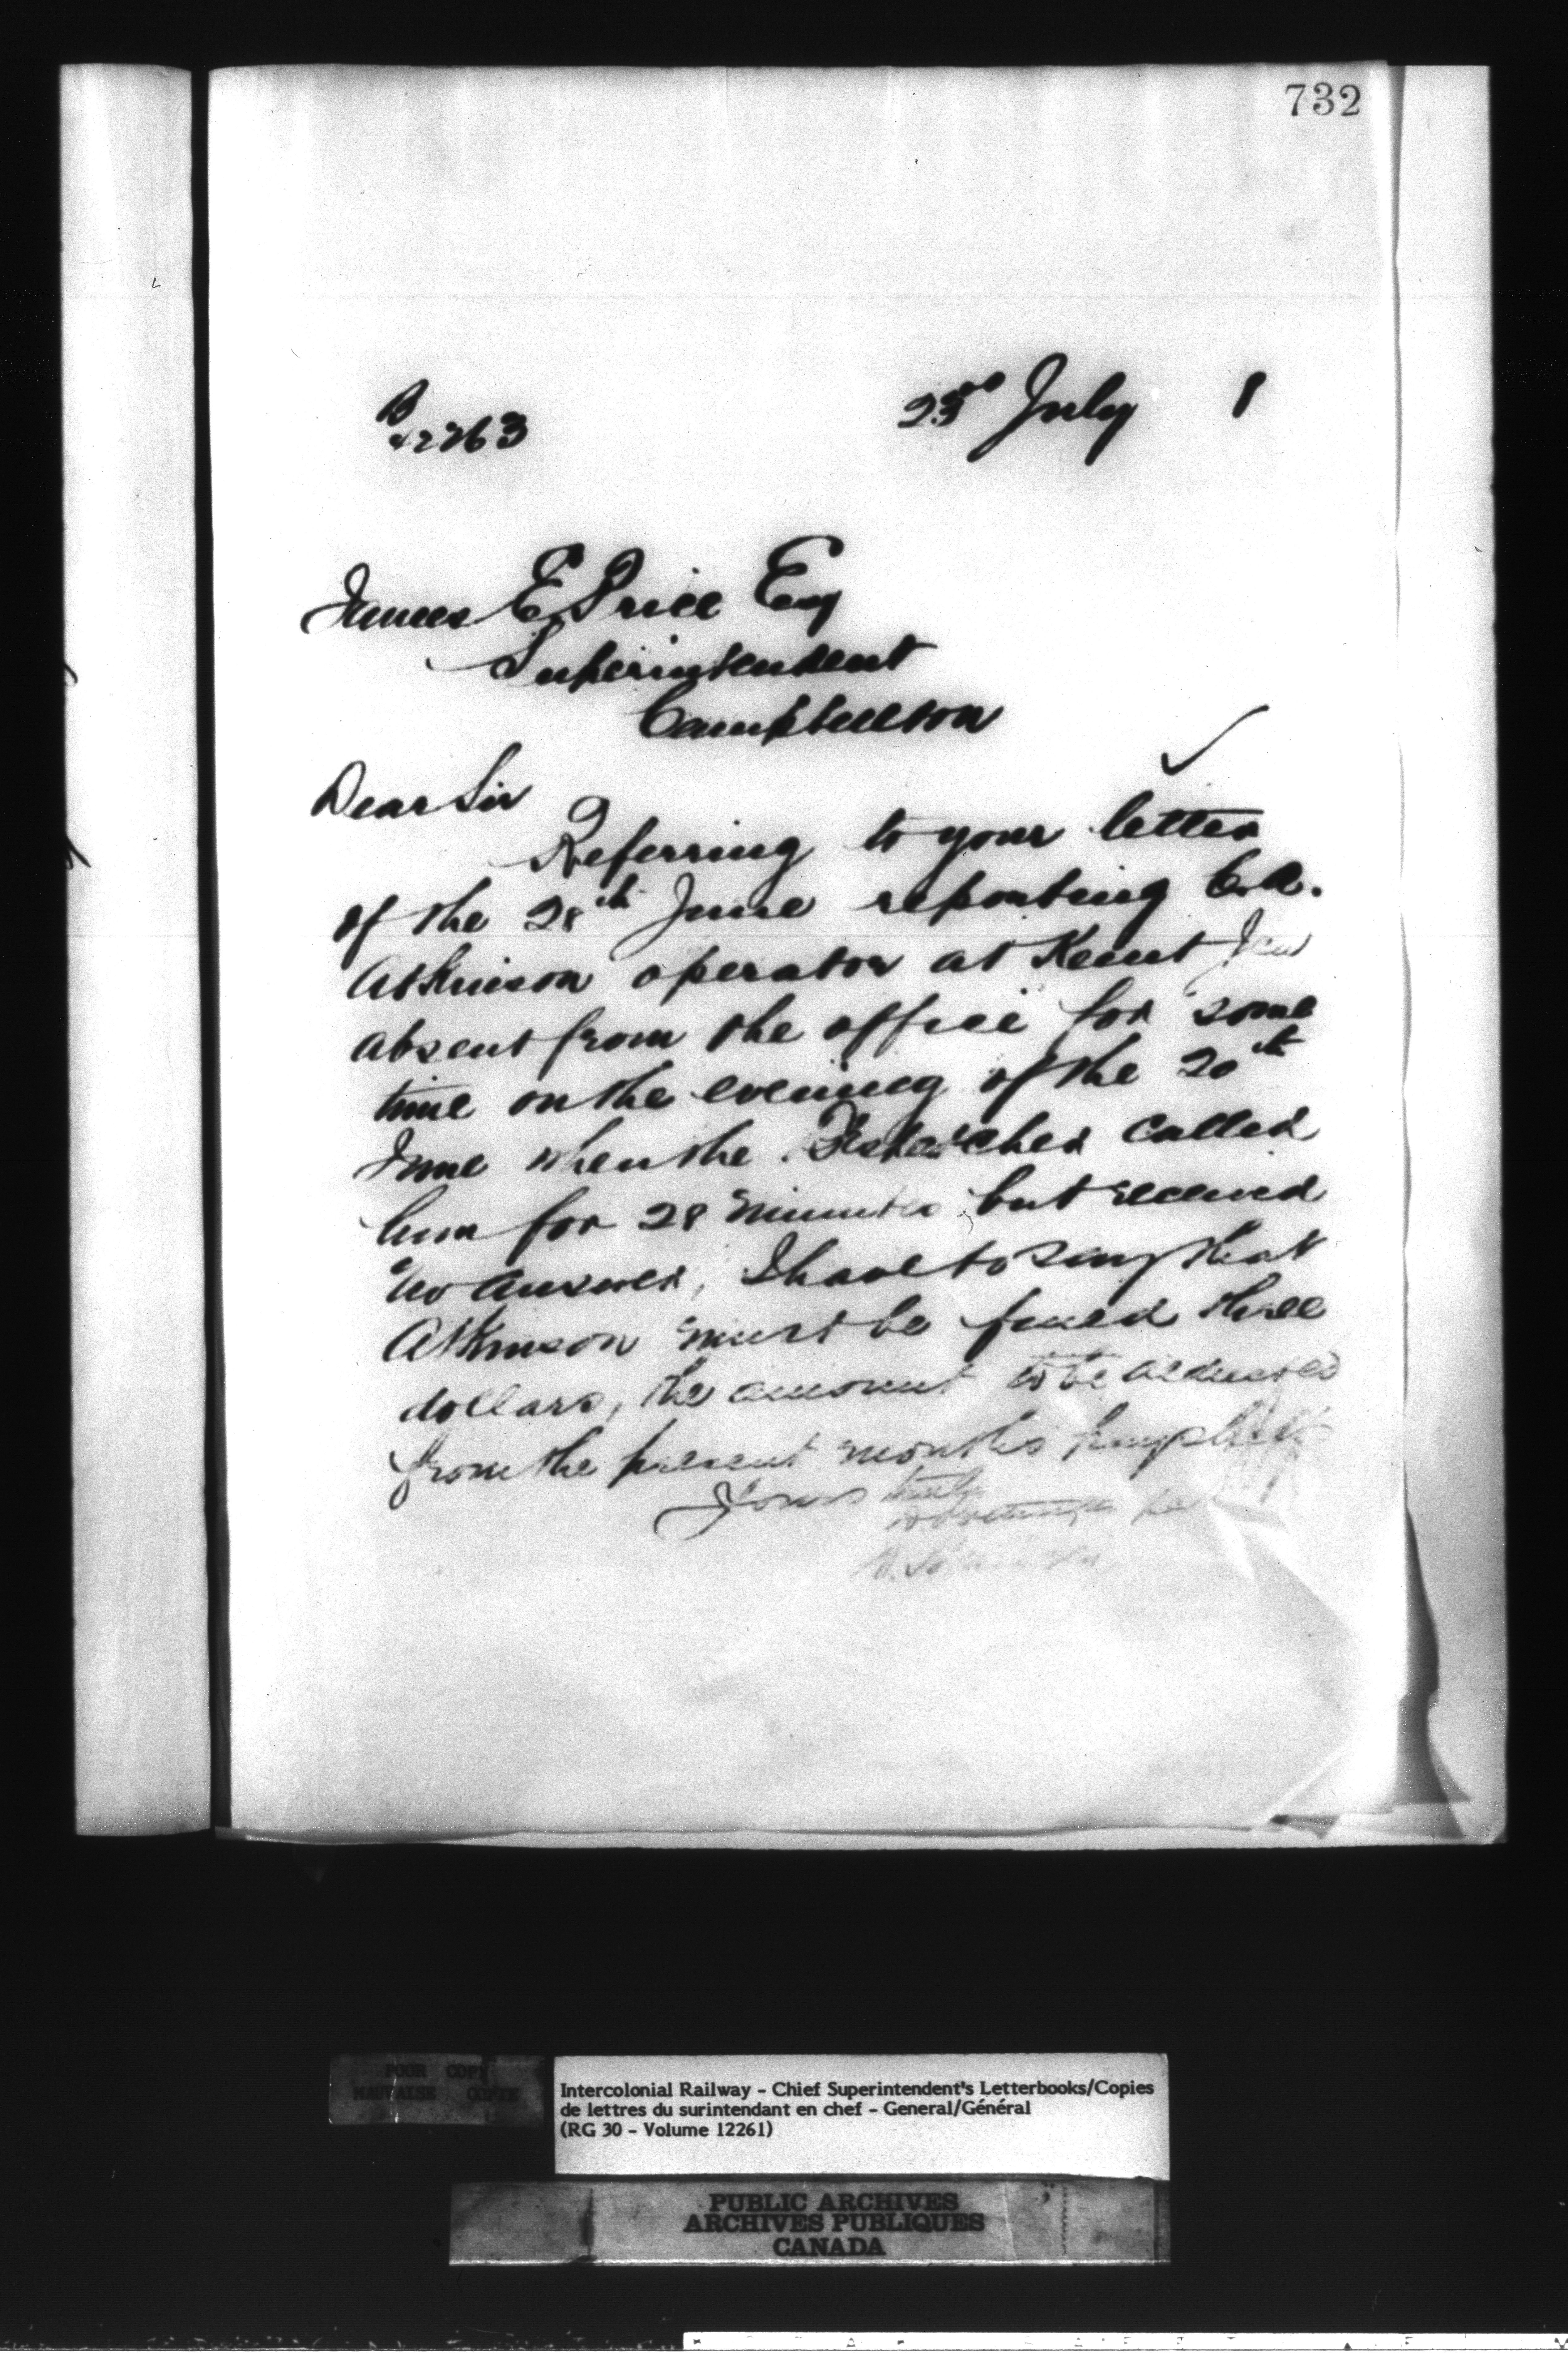 732
23rd July 1
James E Price Esq
Superintendent
Campbellton
Dear Sir
Referring to your letter
of the 28th June reporting
Atkinson operator at Kent
absent from the office for some
time on the evening of the 20th
June when the Despatcher called
him for 28 minutes but received
no answer, I have to say that
Atkinson must be fined three
dollars, the amount to be deducted
from the present months
Yours truly
POOR COPY
MAUVAISE COPIE
Intercolonial Railway - Chief Superintendent's Letterbooks/Copies
de lettres du surintendant en chef - General/Général
(RG 30 - Volume 12261)
PUBLIC ARCHIVES
ARCHIVES PUBLIQUES
CANADA